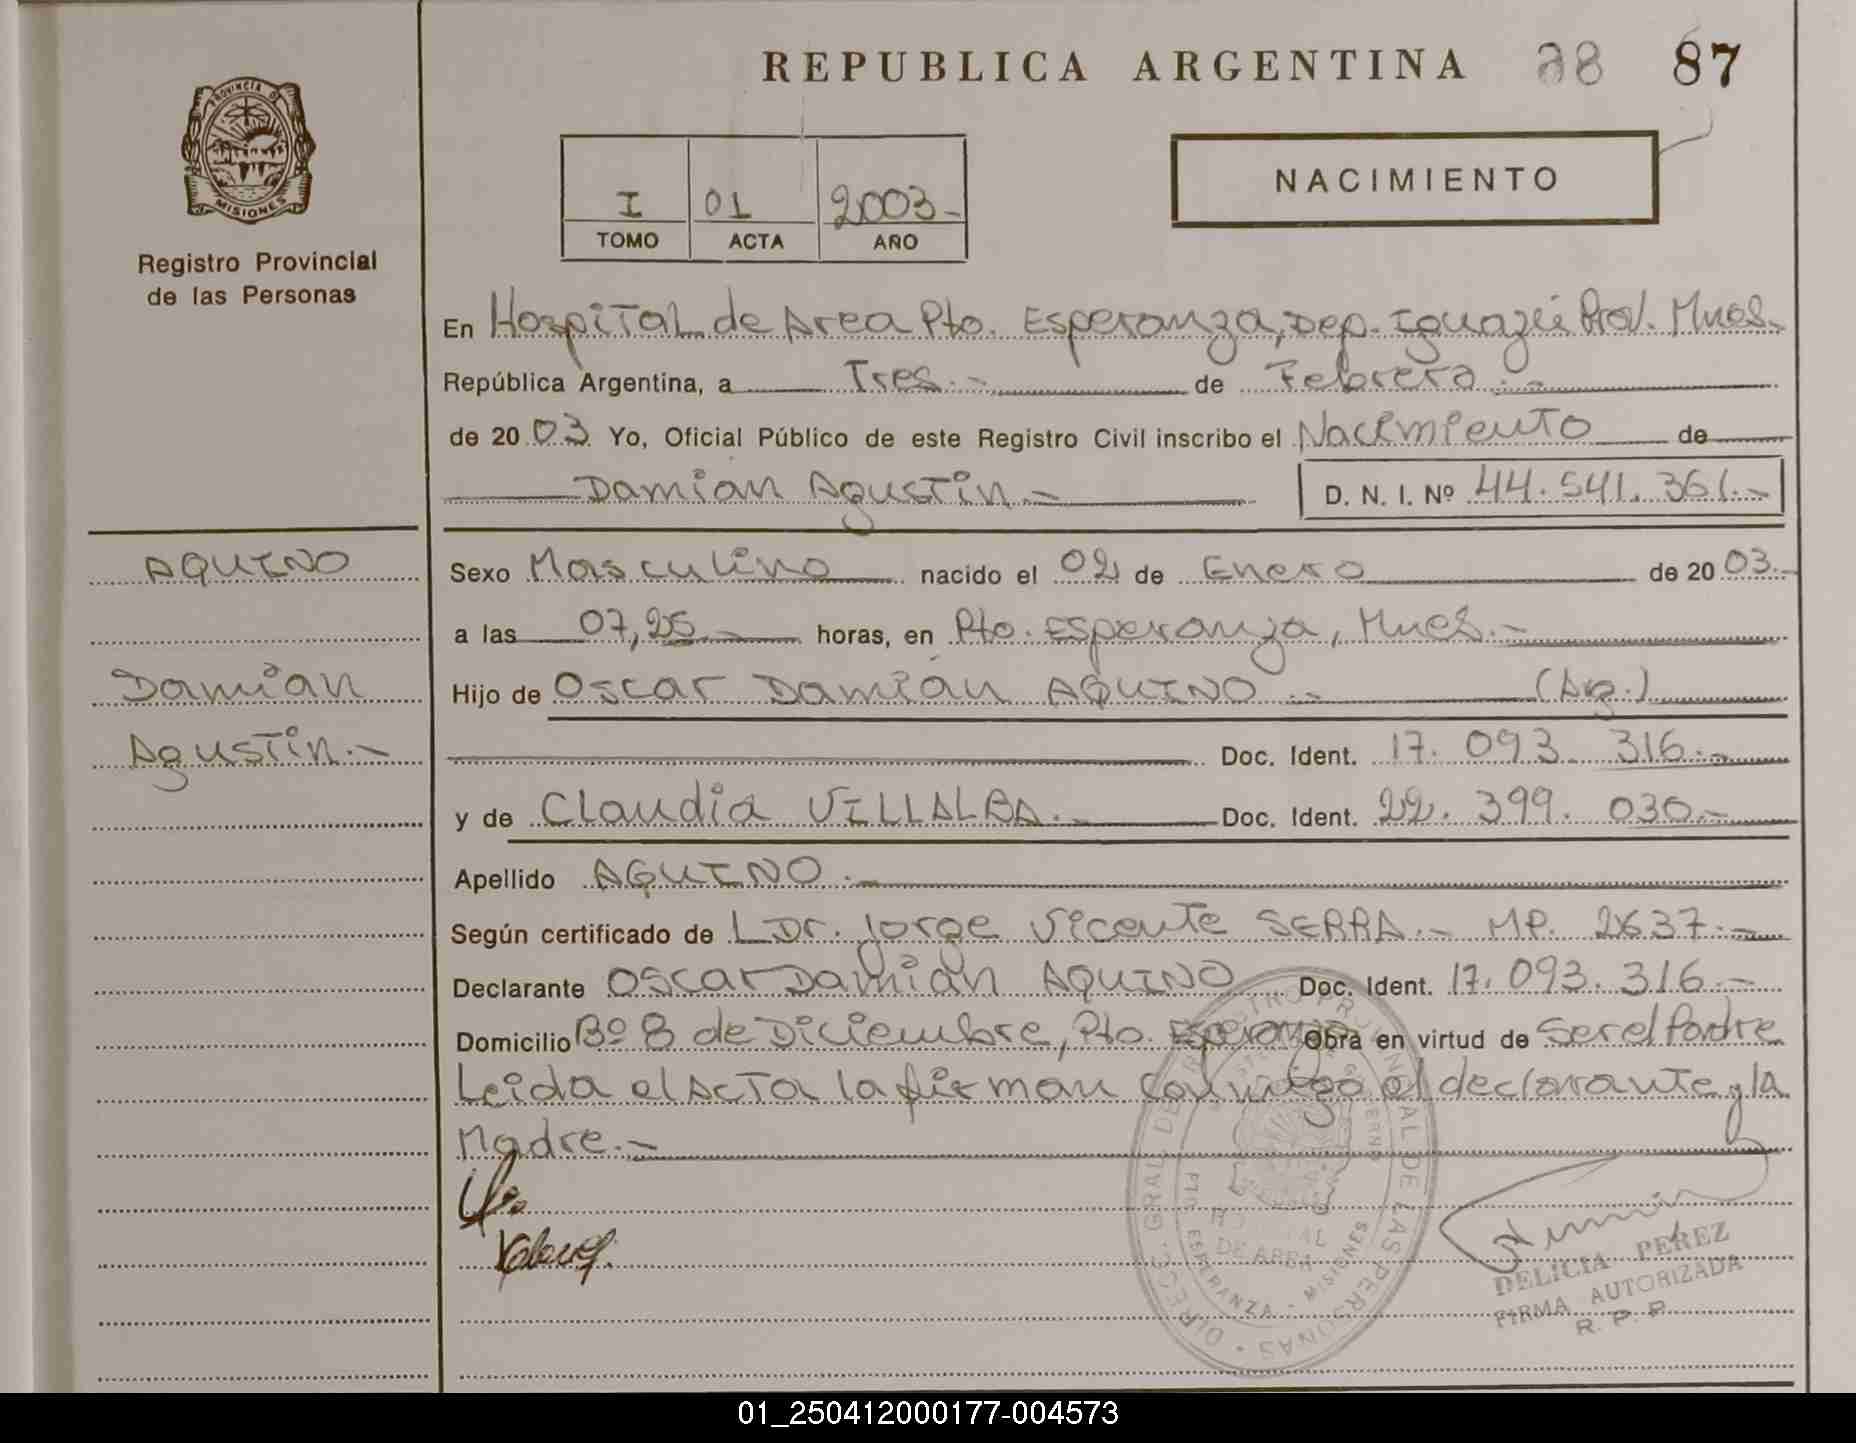 REPUBLICA ARGENTINA 28 87
PROVINCIA DE
MISIONES
Registro Provincial
de las Personas
I 01 2003-
TOMO ACTA AÑO
NACIMIENTO
En Hospital de Area Pto. Esperanza, Dep. Iguazú Prov. Mnes.-
República Argentina, a Tres.- de Febrero.-
de 2003 Yo, Oficial Público de este Registro Civil inscribo el Nacimiento de
Damián Agustín.- D. N. I. Nº 44.541.361.-
AQUINO
Damián
Agustín.-
Sexo Masculino nacido el 02 de Enero de 2003.-
a las 07,25.- horas, en Pto. Esperanza, Mnes.-
Hijo de Oscar Damián AQUINO.- (Arg.)
Doc. Ident. 17.093.316.-
y de Claudia VILLALBA.- Doc. Ident. 22.399.030.-
Apellido AQUINO.-
Según certificado de L Dr. Jorge Vicente SERRA.- MP. 2637.-
Declarante Oscar Damián AQUINO Doc. Ident. 17.093.316.-
Domicilio Bº 8 de Diciembre, Pto. Esperanza Obra en virtud de ser el Padre
Leida el Acta la firman conmigo el declarante y la
Madre.-
DIRECC. GRAL. DE REGISTRO PROVINCIAL DE LAS PERSONAS
HOSPITAL
DE AREA
PTO. ESPERANZA - MISIONES
DELICIA PEREZ
FIRMA AUTORIZADA
R. P. P.
01_250412000177-004573